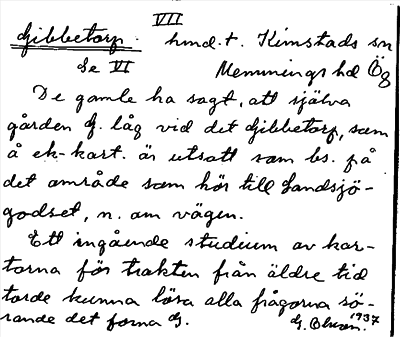 VII
Gibbetorp. hmd. t. Kimstads sn
Se VI Memmings hd Ög
De gamle ha sagt, att själva
gården G. låg vid det Gibbetorp, som
å ek-kart. är utsatt som bs. på
det område som hör till Landsjö-
godset, n. om vägen.
Ett ingående studium av kar-
torna för trakten från äldre tid
torde kunna lösa alla frågorna rö-
rande det forna G.
G. Olson. 1937